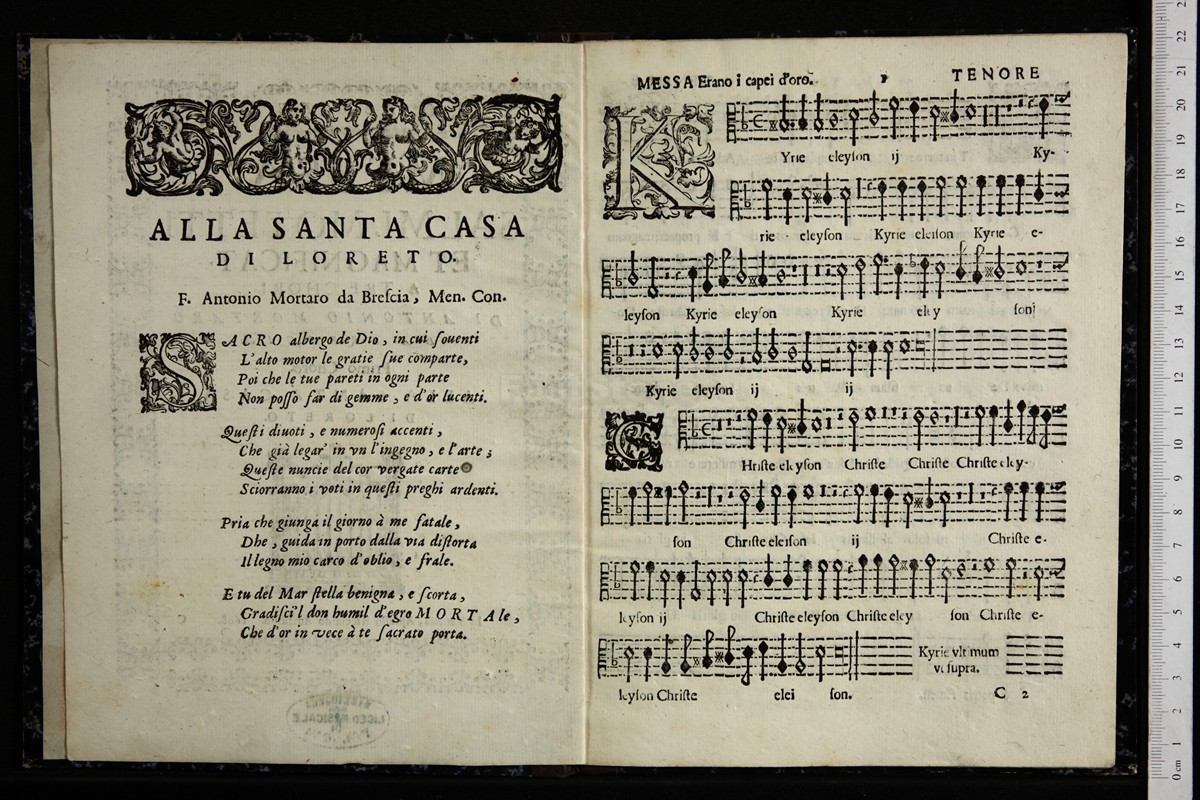 ALLA SANTA CASA
DI LORETO.
F. Antonio Mortaro da Breſcia, Men. Con.
SACRO albergo de Dio, in cui ſouenti
L'alto motor le gratie ſue comparte,
Poi che le tue pareti in ogni parte
Non poſſo far di gemme, e d'or lucenti.
Queſti diuoti, e numeroſi accenti,
Che già legar' in vn l'ingegno, e l'arte;
Queſte nuncie del cor vergate carte
Sciorranno i voti in queſti preghi ardenti.
Pria che giunga il giorno à me fatale,
Dhe, guida in porto dalla via diſtorta
Il legno mio carco d'oblio, e frale.
E tu del Mar ſtella benigna, e ſcorta,
Gradiſci'l don humil d'egro MORTAle,
Che d'or in vece à te ſacrato porta.
BIBLIOTECA
LICEO MUSICALE
MESSA Erano i capei d'oro. 1 TENORE
KYrie eleyſon ij Ky-
rie eleyſon Kyrie eleiſon Kyrie e-
leyſon Kyrie eleyſon Kyrie eley ſon
Kyrie eleyſon ij ij
CHriſte eleyſon Chriſte Chriſte Chriſte eley-
ſon Chriſte eleiſon ij Chriſte e-
leyſon ij Chriſte eleyſon Chriſte eley ſon Chriſte e-
leyſon Chriſte elei ſon.
Kyrie vltimum
vt ſupra.
C 2
22
21
20
19
18
17
16
15
14
13
12
11
10
9
8
7
6
5
4
3
2
1
0 cm